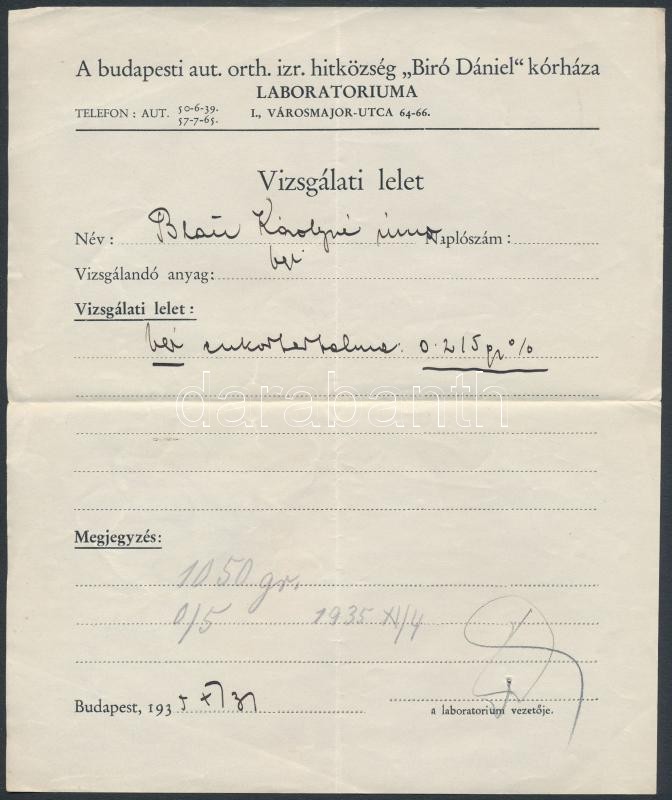 A budapesti aut. orth. izr. hitközség „Biró Dániel“ kórháza
LABORATORIUMA
TELEFON : AUT. 50-6-39. 57-7-65. I., VÁROSMAJOR-UTCA 64-66.
Vizsgálati lelet
Név : Blau Károlyné Naplószám :
Vizsgálandó anyag: vér
Vizsgálati lelet :
vér cukortartalma: 0.215 gr%
darabanth
Megjegyzés:
1050 gr.
0/5 1935 XI/4
Budapest, 1935 X/31
a laboratorium vezetője.